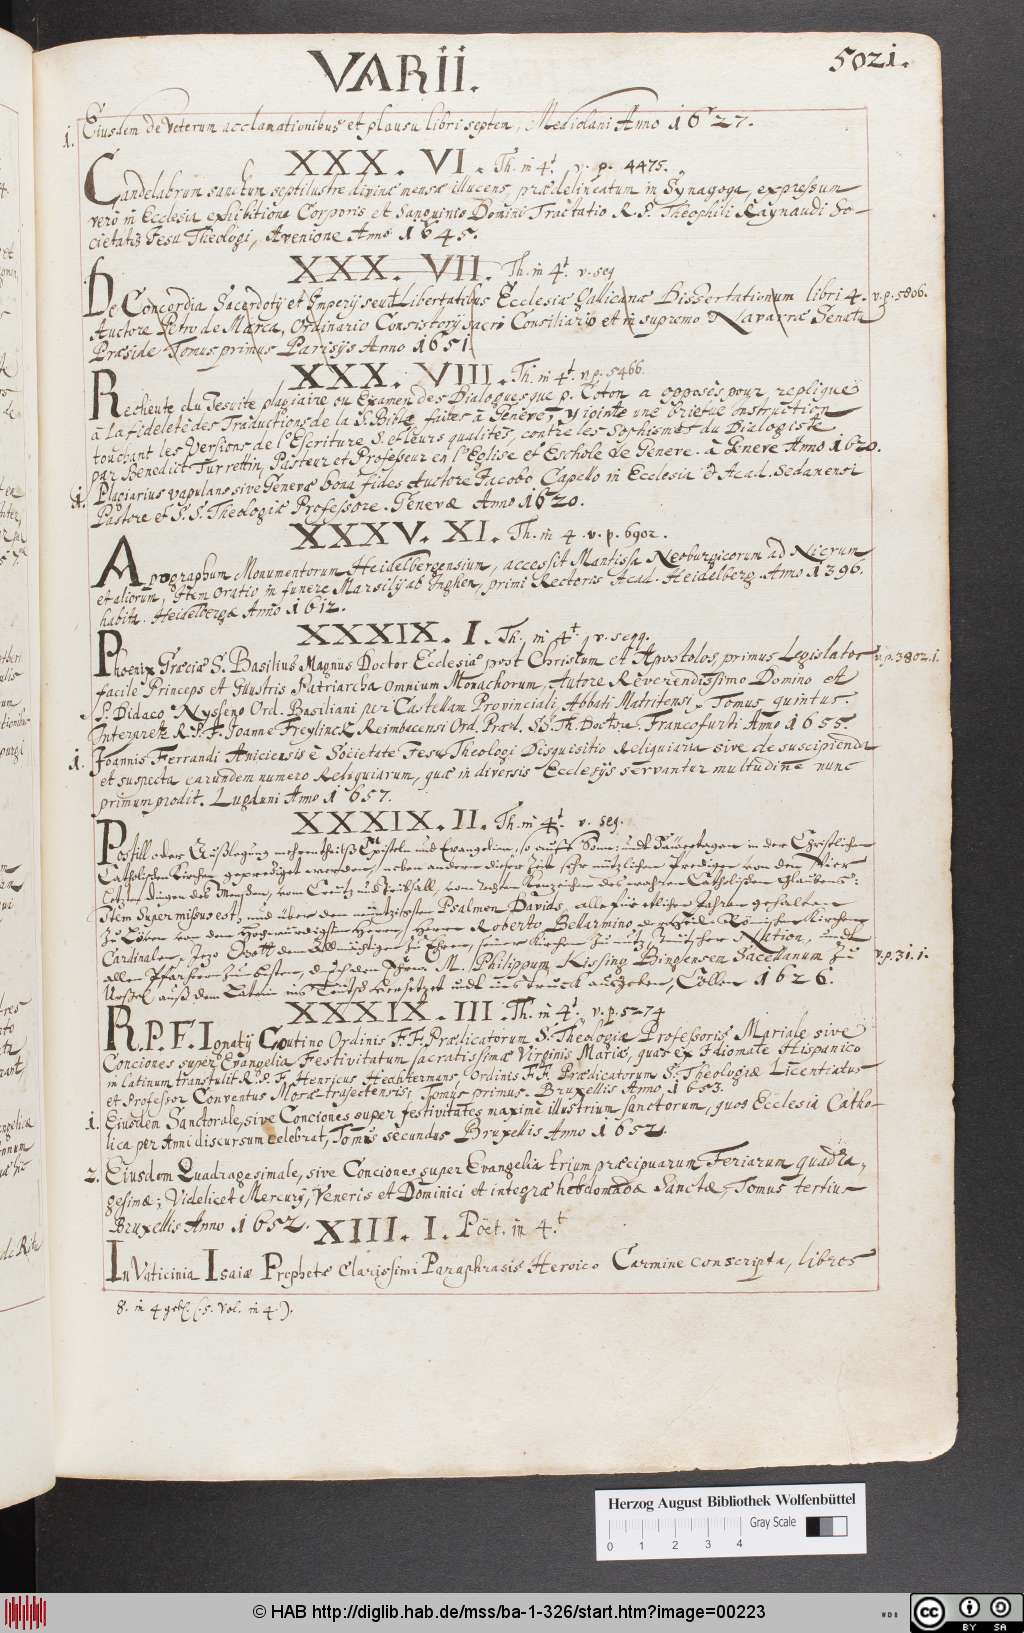 VARII.
5021.
1. Eiusdem de veterum acclamationibus et plausu libri septem, Mediolani Anno 1627.
XXX. VI. Th. in 4t. v. p. 4475.
Candelabrum sanctum septilustre divinæ mensæ illucens, prædelineatum in Synagoga, expressum
verò in Ecclesia exhibitione Corporis et Sanguinis Domini Tractatio R. P. Theophili Raynaudi So-
cietatis Jesu Theologi, Avenione Anno 1645.
XXX. VII. Th. in 4t. v. seq
De Concordia Sacerdotij et Imperij seu Libertatibus Ecclesiæ Gallicanæ Dissertationum libri 4. v. p. 5806.
Auctore Petro de Marca, Ordinario Consistorij sacri Consiliario et in supremo Navarræ Senatu
Præside Tomus primus Parisijs Anno 1651.
XXX. VIII. Th. in 4t. v. p. 5466.
Recheute du Jesuite plagiaire ou Examen des Dialogues que p. Coton a opposés pour replique
à la fidelete des Traductions de la S. Bible faites à Genève, y iointe une briefue instruction
touchant les Versions de l'Escriture S. et leurs qualités, contre les Sophismes du Dialogiste
par Benedict Turrettin, Pasteur et Professeur en l'Eglise et Eschole de Geneve. à Geneve Anno 1620.
1. Plagiarius vapulans sive Genevæ bona fides Auctore Jacobo Capello in Ecclesia & Acad. Sedanensi
Pastore et S. S. Theologiæ Professore. Genevæ Anno 1620.
XXXV. XI. Th. in 4. v. p. 6902.
Apographum Monumentorum Heidelbergensium, accessit Mantissa Neoburgicorum ad Nicrum
et aliorum, Item Oratio in funere Marsilij ab Inghen, primi Rectoris Acad. Heidelberg. Anno 1396.
habita. Heidelbergæ Anno 1612.
XXXIX. I. Th. in 4t. v. seqq.
Phoenix Græciæ S. Basilius Magnus Doctor Ecclesiæ post Christum et Apostolos, primus Legislator v. p. 3802. 1.
facile Princeps et Illustris Patriarcha omnium Monachorum, Autore Reverendissimo Domino et
P. Didaco Nysseno Ord. Basiliani per Castellam Provinciali, Abbati Matritensi, Tomus quintus.
Interprete R. P. F. Joanne Freylinck Reimbacensi Ord. Præd. SS. Th. Doctore. Francofurti Anno 1655.
1. Joannis Ferrandi Aniciensis è Societate Jesu Theologi Disquisitio Reliquiaria sive de suscipienda
et suspecta earundem numero Reliquiarum, quæ in diversis Ecclesijs servantur multitudine nunc
primum prodit. Lugduni Anno 1657.
XXXIX. II. Th. in 4t. v. seq.
Postill oder Außlegung mehrentheilß Episteln und Evangelien, so auff Sonn: undt Feyertagen in der Christlichen
Catholischen Kirchen geprediget werden, neben andern dieser Zeit sehr nützlichen Predigen von den Vier
letzten dingen des Menschen, vom Creutz und Trübsall, vom rechten Kenzeichen des wahren Catholischen Glaubens:
Item Super missus est, und über den Psalmen Davids, alle für etlichen Jahren gehalten
zu Löven von dem Hochwürdigsten Herrn, Herrn Roberto Bellarmino der Heil. Römischen Kirchen
Cardinalen, Jezo Gott dem Allmächtigen zu Ehren, seiner Kirchen zu nutz, Teutscher Nation, undt
allen Pfarherrn zum besten, durch den M. Philippum Kissing Bingensem Sacellanum zu v. p. 31. 1.
auß dem Latein ins Teutsch versetzet undt in truck außgeben, Cöllen 1626.
XXXIX. III. Th. in 4t. v. p. 5274
R. P. F. Ignatij Coutino Ordinis F. F. Prædicatorum S. Theologiæ Professoris Mariale sive
Conciones super Evangelia Festivitatum sacratissimæ Virginis Mariæ, quas ex Idiomate Hispanico
in latinum transtulit R. P. F. Henricus Hechtermans, Ordinis F. F. Prædicatorum S. Theologiæ Licentiatus
et Professor Conventus Mosæ-trajectensis, Tomus primus. Bruxellis Anno 1653.
1. Eiusdem Sanctorale, sive Conciones super festivitates maximè illustrium sanctorum, quos Ecclesia Catho-
lica per Anni discursum celebrat, Tomus secundus Bruxellis Anno 1652.
2. Eiusdem Quadragesimale, sive Conciones super Evangelia trium præcipuarum Feriarum quadra-
gesimæ; Videlicet Mercurij, Veneris et Dominici et integræ hebdomadæ Sanctæ, Tomus tertius
Bruxellis Anno 1652.
XIII. I. Poët. in 4.t
In Vaticinia Isaiæ Prophetæ clarissimi Paraphrasis Heroico Carmine conscripta, libros
8. in 4 gebl. (5. Vol. in 4.).
Herzog August Bibliothek Wolfenbüttel
Gray Scale
0 1 2 3 4
© HAB http://diglib.hab.de/mss/ba-1-326/start.htm?image=00223
WDB
cc BY SA